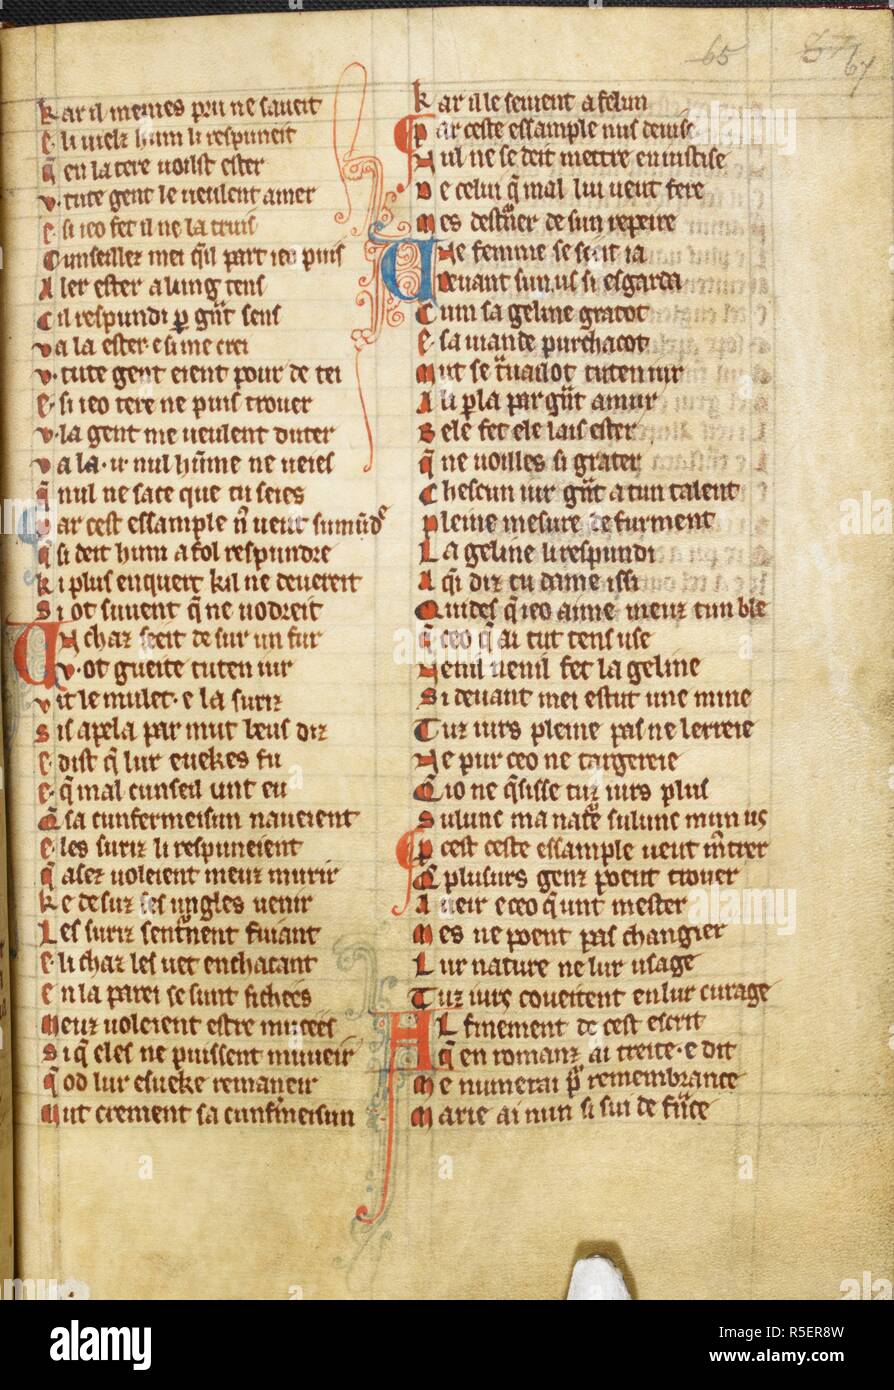 65 67
kar il memes pru ne saueit
e li uielz hum li respuneit
q̄ en la tere uoilst ester
v tute gent le ueulent amer
e si ieo fet il ne la truis
Cunseillez mei q̄il part ieo puis
Aler ester a lung tens
Cil respundi p gñt sens
va la ester e si me crei
v tute gent eient pour de tei
e si ieo tere ne puis trouer
v la gent me ueulent duter
va la u nul hūme ne ueies
q̄ nul ne sace que tu seies
Par cest essample nꝰ ueut sumūdᵉ
q̄ si deit hum a fol respundre
ki plus enquert kil ne deuereit
Si ot suuent q̄ ne uodreit
Un chaz seeit de sur un fur
v ot gueite tuten iur
vit le mulet e la suriz
Sis apela par mut beus diz
e dist q̄ lur eueskes fu
e q̄ mal cunseil unt eu
Q̄ sa cunfermeisun naueient
e les suriz li respuneient
q̄ asez uoleient meuz murir
ke desuz ses ungles uenir
Les suriz senturnent fuiant
e li chaz les uet enchacant
en la parei se sunt fichees
Meuz uoleient estre mucees
Si q̄ eles ne puissent muueir
q̄ od lur esueke remaneir
Mut crement sa cunfirmeisun
kar il le seuent a felun
Par ceste essample nus deuise
Nul ne se deit mettre en iustise
De celui q̄ mal lui ueut fere
Mes desturner de sun repeire
Une femme se seeit ia
Deuant sun us si esgarda
Cum sa geline gratot
e sa uiande purchacot
Mut se trauailot tuten iur
A li pla par gñt amur
Bele fet ele lais ester
q̄ ne uoilles si grater
Chescun iur gñt a tun talent
pleine mesure de furment
La geline li respundi
A q̄i diz tu dame issi
Quides q̄ ieo aime meuz tun ble
q̄ ceo q̄ ai tut tens use
Nenil nenil fet la geline
Si deuant mei estut une mine
Tuz iurs pleine pas ne lerreie
Ne pur ceo ne targereie
Q̄ io ne q̄sisse tuz iurs plus
Sulunc ma natᵉ sulunc mun us
p cest ceste essample ueut mᵒtrer
Q̄ plusurs genz poent trouer
Aueir e ceo q̄ unt mester
Mes ne poent pas changier
Lur nature ne lur usage
Tuz iurs coueitent en lur curage
Al finement de cest escrit
q̄ en romanz ai treite e dit
Me numerai p remembrance
Marie ai nun si sui de frᵃce
alamy
alamy stock photo
a
Image ID: R5ER8W
www.alamy.com